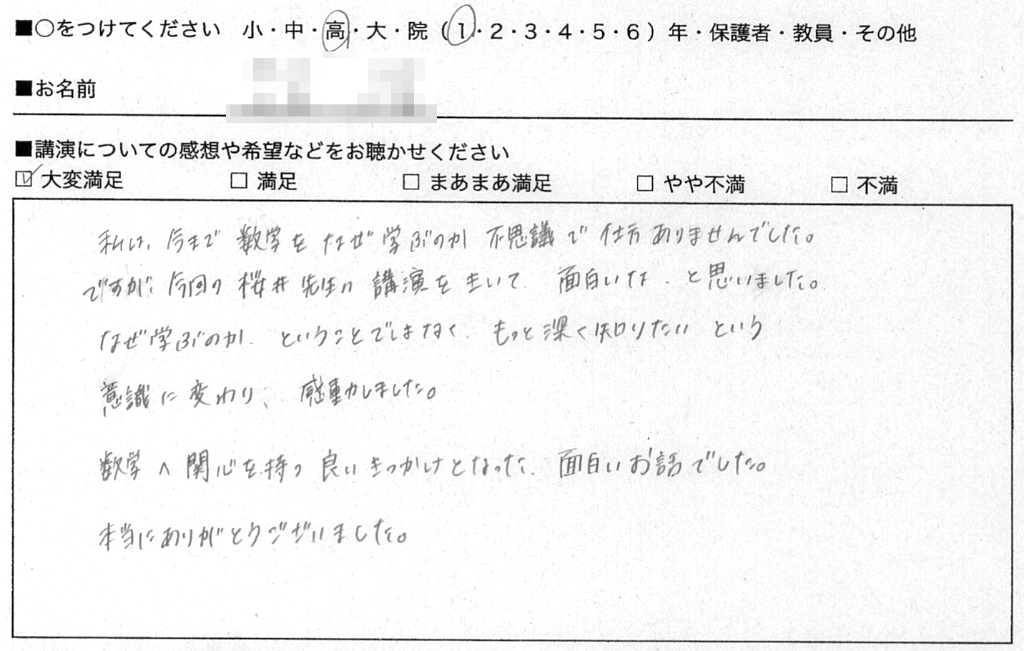 ■○をつけてください 小・中・高・大・院（1・2・3・4・5・6）年・保護者・教員・その他
■お名前
■講演についての感想や希望などをお聴かせください
☑ 大変満足 □ 満足 □ まあまあ満足 □ やや不満 □ 不満
私は、今まで数学をなぜ学ぶのか不思議で仕方ありませんでした。
ですが、今回の桜井先生の講演を主いて、面白いな、と思いました。
なぜ学ぶのか、ということではなく、もっと深く知りたいという
意識に変わり、感動しました。
数学へ関心を持つ良いきっかけとなった、面白いお話でした。
本当にありがとうございました。